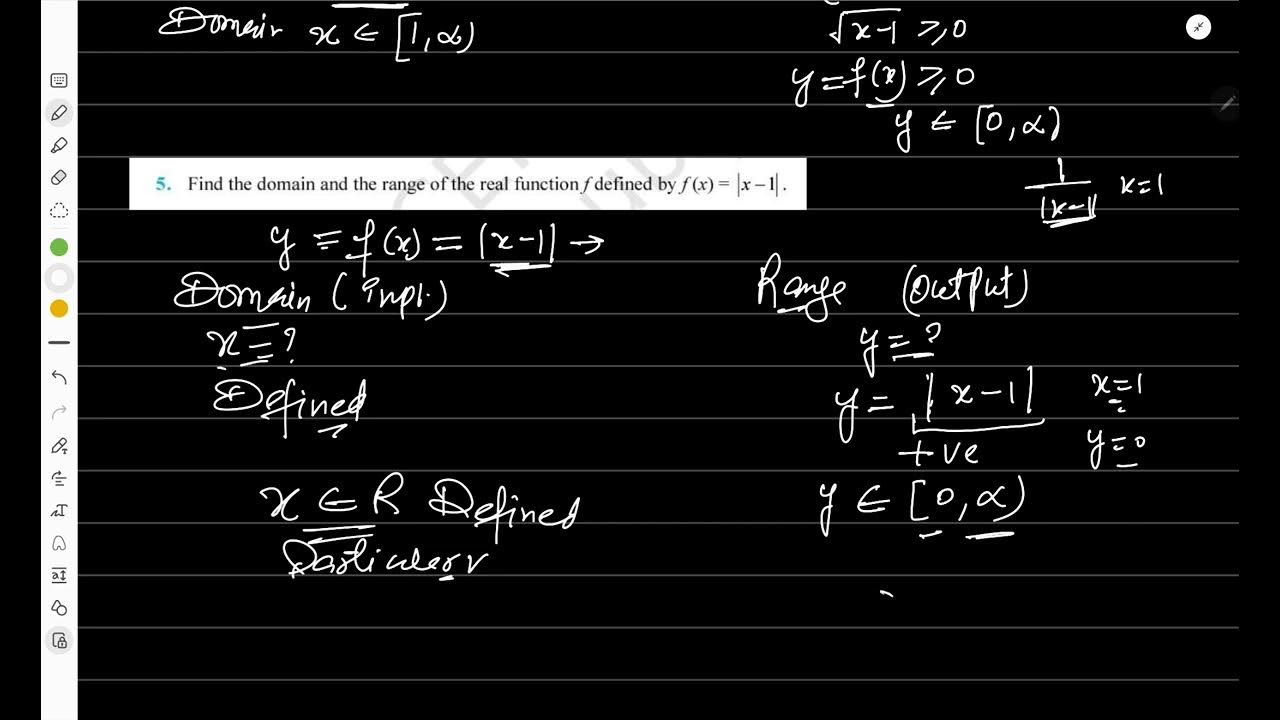 Domain x ∈ [1, ∝)
√x-1 ⩾ 0
y = f(x) ⩾ 0
y ∈ [0, ∝)
5. Find the domain and the range of the real function f defined by f(x) = |x – 1| .
1/|x-1| x=1
y = f(x) = |x-1| →
Domain (inpt.)
x = ?
Defined
x ∈ R Defined
Particular
Range (Output)
y = ?
y = |x-1| x=1
+ve y=0
y ∈ [0, ∝)